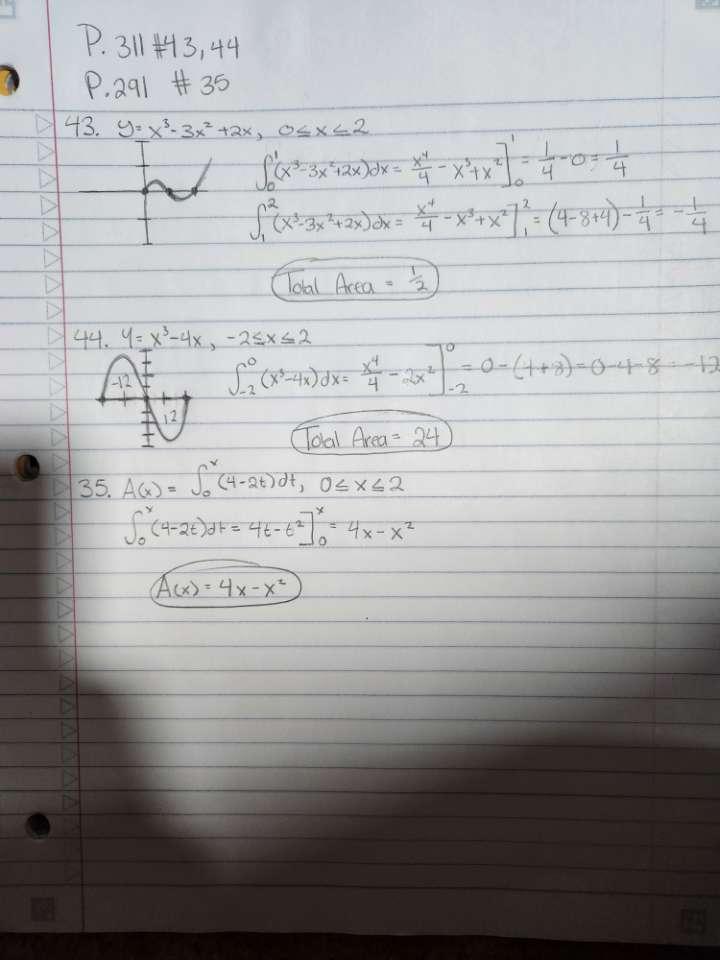 P. 311 #43, 44
P. 291 # 35
43. y = x³-3x²+2x, 0≤x≤2
∫₀¹(x³-3x²+2x)dx = x⁴/4 - x³+x²]₀¹ = 1/4 - 0 = 1/4
∫₁²(x³-3x²+2x)dx = x⁴/4 - x³+x²]₁² = (4-8+4) - 1/4 = -1/4
Total Area = 1/2
44. y = x³-4x, -2≤x≤2
∫₋₂⁰(x³-4x)dx = x⁴/4 - 2x²]₋₂⁰ = 0-(4+8) = 0-4-8 = -12
-12
12
Total Area = 24
35. A(x) = ∫₀ˣ(4-2t)dt, 0≤x≤2
∫₀ˣ(4-2t)dt = 4t-t²]₀ˣ = 4x-x²
A(x) = 4x-x²